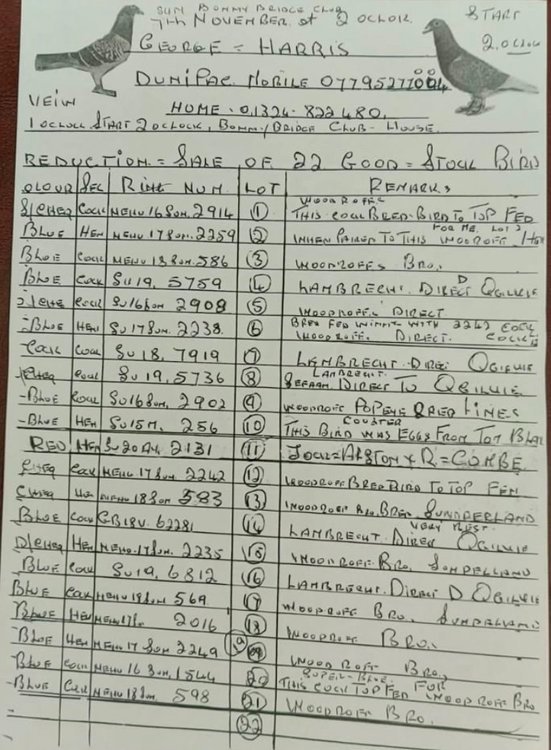 SUM BONNY BRIDGE CLUB
7TH NOVEMBER. at 2 OCLOCK
START
2.OCLOCK
GEORGE = HARRIS
DUNIPAC. MOBILE
VEIW
HOME - 01324-822480.
1 OCLOCK START 2 OCLOCK, BONNY BRIDGE CLUB-HOUSE
REDUCTION = SALE OF 22 GOOD = STOCK BIRD
OLOUR SEX RING NUM. LOT REMARKS
COCK NEHU 16 SUM. 2914 1 WOODROFFS THIS COCK BRED BIRD TO TOP FED
BLUE HEN NEHU 17 SUM. 2259 2 WHEN PAIRED TO THIS WOODROFF HEN
FOR ME. LOT
BLUE COCK NEHU 18 SUM. 586 3 WOODROFFS BRO.
BLUE COCK SU 19. 5759 4 LAMBRECHT. DIRECT D OGILVIE
COCK SU 16 SUM 2908 5 WOODROFFE. DIRECT
-BLUE HEN SU 17 SUM. 2238 6 BRED FED WINNER WITH 2242 COCK
WOODROFF. DIRECT.
COCK SU 18. 7919 7 LAMBRECHT. DIRECT OGILVIE
COCK SU 19. 5736 8 LAMBRECHT. DIRECT TO OGILVIE
-BLUE COCK SU 16 SUM. 2902 9 WOODROFF POPEYE BRED LINES
-BLUE HEN SU 15 256 10 COUSTER THIS BIRD WAS EGGS FROM TOM BLAC
RED HEN SU 20 2131 11 JOCK = ALSTON & R. = COMBE
CHEQ COCK NEHU 17 SUM. 2242 12 WOODROFF BRED BIRD TO TOP FEN
CHEQ HEN NEHU 18 SUM 583 13 WOODROFF BRO. BRED. SUNDERLAND
BLUE COCK GB 18V. 62281 14 VERY BEST. LAMBRECHT. DIRECT OGILVIE
D/CHEQ HEN NEHU 17 SUM. 2235 15 WOODROFF BRO.
BLUE COCK SU 19. 6812 16 LAMBRECHT. DIRECT D OGILVIE
BLUE COCK NEHU 18 SUM 569 17 WOODROFF BRO.
BLUE HEN NEHU 17 2016 18 WOODROFF BRO.
-BLUE HEN NEHU 17 SUM 2249 19 WOODROFF BRO.
BLUE COCK NEHU 16 SUM. 1544 20 THIS COCK TOP FED FOR WOODROFF BRO
-BLUE COCK NEHU 18 SUM. 598 21 WOODROFF BRO.
22